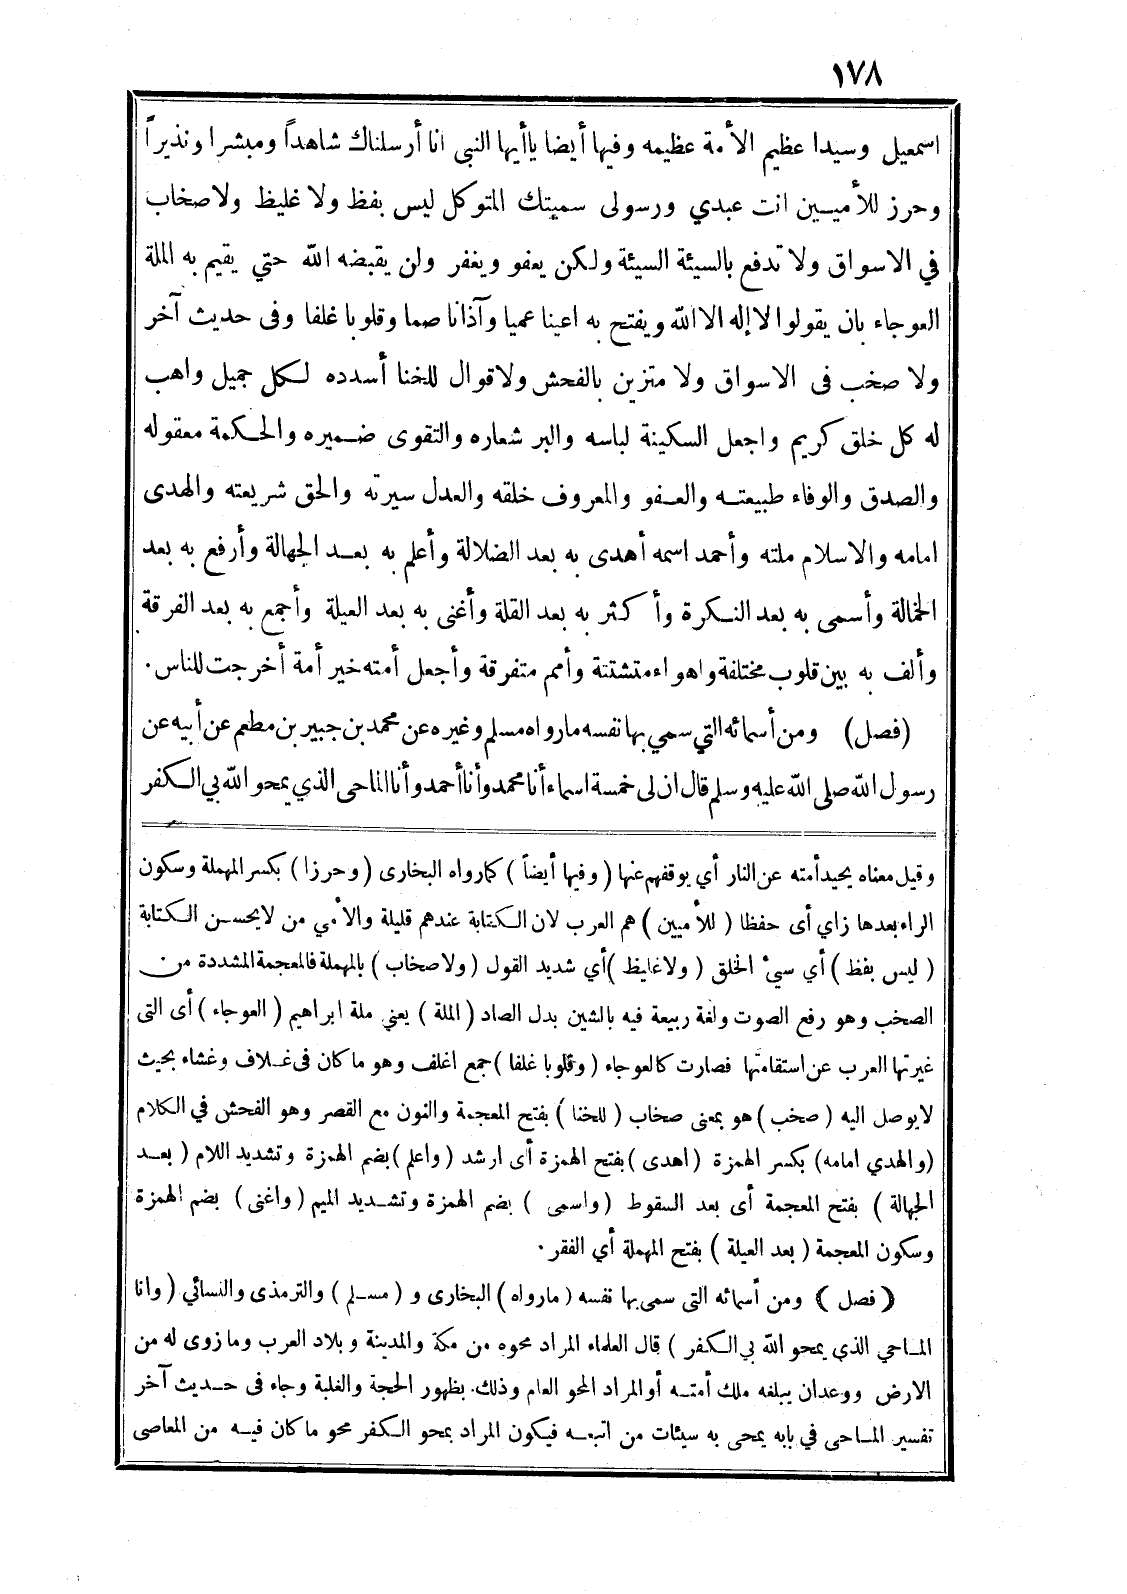 ١٧٨
اسمعيل وسيدا عظيم الأمة عظيمه وفيها أيضا ياأيها النبى انا أرسلناك شاهداً ومبشرا ونذيراً
وحرز للأميين انت عبدي ورسولى سميتك المتوكل ليس بفظ ولا غليظ ولاصخاب
في الاسواق ولا تدفع بالسيئة السيئة ولكن يعفو ويغفر ولن يقبضه الله حتي يقيم به الملة
العوجاء بان يقولوا لا إله الا الله ويفتح به اعينا عميا وآذانا صما وقلوبا غلفا وفى حديث آخر
ولا صخب فى الاسواق ولا متزين بالفحش ولاقوال للخنا أسدده لكل جميل واهب
له كل خلق كريم واجعل السكينة لباسه والبر شعاره والتقوى ضميره والحكمة معقوله
والصدق والوفاء طبيعته والعفو والمعروف خلقه والعدل سيرته والحق شريعته والهدى
امامه والاسلام ملته وأحمد اسمه أهدى به بعد الضلالة وأعلم به بعد الجهالة وأرفع به بعد
الخمالة وأسمى به بعد النكرة وأكثر به بعد القلة وأغنى به بعد العيلة وأجمع به بعد الفرقة
وألف به بين قلوب مختلفة واهواء متشتتة وأمم متفرقة وأجعل أمته خير أمة أخرجت للناس.
(فصل) ومن أسمائه التي سمي بها نفسه مارواه مسلم وغيره عن محمد بن جبير بن مطعم عن أبيه عن
رسول الله صلى الله عليه وسلم قال ان لى خمسة اسماء أنا محمد وأنا أحمد وأنا الماحى الذي يمحو الله بي الكفر
وقيل معناه يحيد أمته عن النار أي يوقفهم عنها (وفيها أيضاً) كما رواه البخارى (وحرزا) بكسر المهملة وسكون
الراء بعدها زاي أى حفظا (للأميين) هم العرب لان الكتابة عندهم قليلة والأمي من لايحسن الكتابة
(ليس بفظ) أي سيء الخلق (ولاغايظ) أي شديد القول (ولاصخاب) بالمهملة فالمعجمة المشددة من
الصخب وهو رفع الصوت ولغة ربيعة فيه بالشين بدل الصاد (الملة) يعني ملة ابراهيم (العوجاء) أى التى
غيرتها العرب عن استقامتها فصارت كالعوجاء (وقلوبا غلفا) جمع اغلف وهو ماكان فى غلاف وغشاء بحيث
لايوصل اليه (صخب) هو بمعنى صخاب (للخنا) بفتح المعجمة والنون مع القصر وهو الفحش في الكلام
(والهدي امامه) بكسر الهمزة (اهدى) بفتح الهمزة أى ارشد (واعلم) بضم الهمزة وتشديد اللام (بعد
الجهالة) بفتح المعجمة أى بعد السقوط (واسمى) بضم الهمزة وتشديد الميم (واغنى) بضم الهمزة
وسكون المعجمة (بعد العيلة) بفتح المهملة أي الفقر.
(فصل) ومن أسمائه التى سمى بها نفسه (مارواه) البخارى و (مسلم) والترمذى والنسائي (وانا
الماحي الذي يمحو الله بي الكفر) قال العلماء المراد محوه من مكة والمدينة وبلاد العرب ومازوى له من
الارض ووعدان يبلغه ملك أمته أوالمراد المحو العام وذلك بظهور الحجة والغلبة وجاء فى حديث آخر
تفسير الماحى في بابه يمحى به سيئات من اتبعه فيكون المراد بمحو الكفر محو ماكان فيه من المعاصى